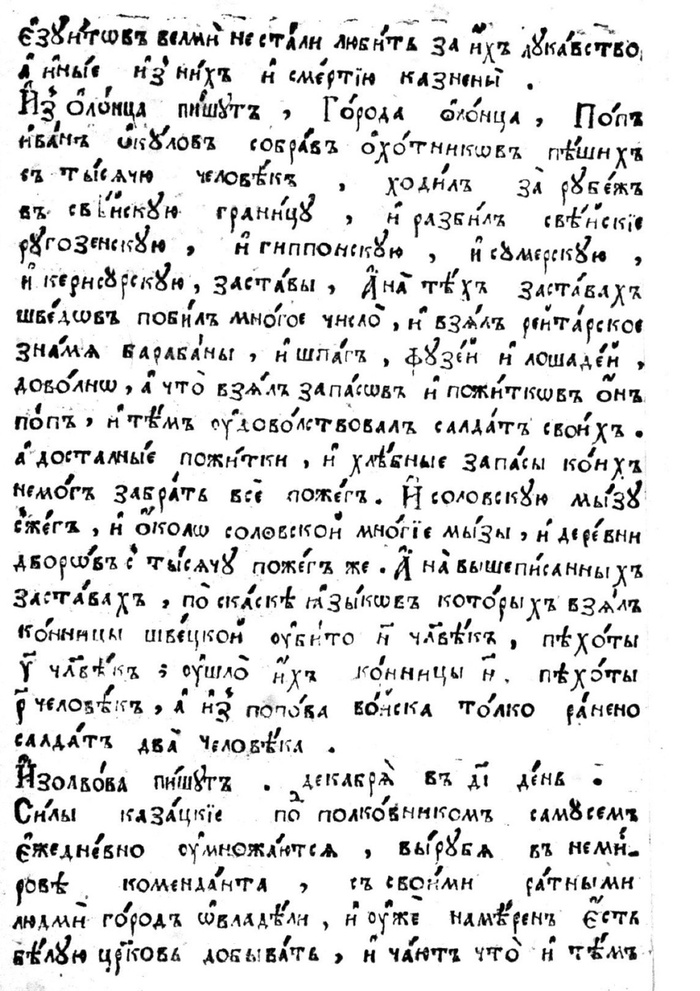 є҆зꙋи́тѡвъ велмѝ не ста́ли люби́ть за и҆́хъ лꙋка́вство,
а҆ и҆ны́е и҆з̾ ни́хъ и҆ сме́ртїю казнены̀ .
И҆з̾ о҆ло́нца пи́шꙋтъ , Го́рода ѻ҆ло́нца , По́пъ
ива́нъ о҆кꙋ́ловъ собра́въ о҆хо́тникѡвъ пѣ́шихъ
съ ты́сячю человѣ́къ , ходи́лъ за̀ рꙋбе́жъ
въ сві́йскꙋю грани́цꙋ , и҆ разби́лъ свѣ́йскїе
рꙋгозенскꙋю , и҆ гиппонскꙋю , и҆ сꙋмерскꙋю ,
и҆ керисꙋрскꙋю , заста́вы , А҆ на̀ тѣ́хъ заста́вахъ
шве́дѡвъ поби́лъ мно́гое число̀ , и҆ взя́лъ рейта́рское
зна́мѧ бараба́ны , и҆ шпа́гъ , фꙋзе́й и҆ лошаде́й ,
дово́лнѡ , а҆ что̀ взя́лъ запа́сѡвъ и҆ пожи́ткѡвъ о҆́нъ
по́пъ , и҆ тѣ́мъ ᲂу҆дово́лствовалъ салда́тъ свои́хъ .
а҆ доста́лные пожи́тки , и҆ хлѣ́бные запа́сы ко́ихъ
немо́гъ забра́ть всѐ поже́гъ . И҆ соловскꙋю мы́зꙋ
сже́гъ , и҆ о҆́колѡ соловской мно́гїе мы́зы , и҆ дере́вни
дворѡ́въ с̾ ты́сячꙋ поже́гъ же . А҆ на̀ вышепи́санныхъ
заста́вахъ , по̀ ска́скѣ ꙗ҆зы́кѡвъ кото́рыхъ взя́лъ
ко́нницы шве́цкой ᲂу҆би́то н҃ чл҃вѣ́къ , пѣхо́ты
у҃ чл҃вѣ́къ ; ᲂу҆шло̀ и҆́хъ ко́нницы н҃ . пѣхо́ты
р҃ человѣ́къ , а҆ и҆з̾ попо́ва во́йска то́лко ра́нено
салда́тъ два̀ человѣ́ка .
И҆золво́ва пи́шꙋтъ . декабрѧ̀ въ д҃і де́нь .
Си́лы каза́цкїе под̾ полко́вникомъ самꙋсемъ
є҆жедне́вно ᲂу҆множа́ютсѧ , вы́рꙋбѧ въ неми́-
ровѣ коменда́нта , съ свои́ми ра́тными
людмѝ го́родъ ѡ҆владѣ́ли , и҆ ᲂу҆жѐ намѣ́ренъ є҆́сть
бѣ́лꙋю цр҃ковь добыва́ть , и҆ ча́ютъ что̀ и҆ тѣ́мъ